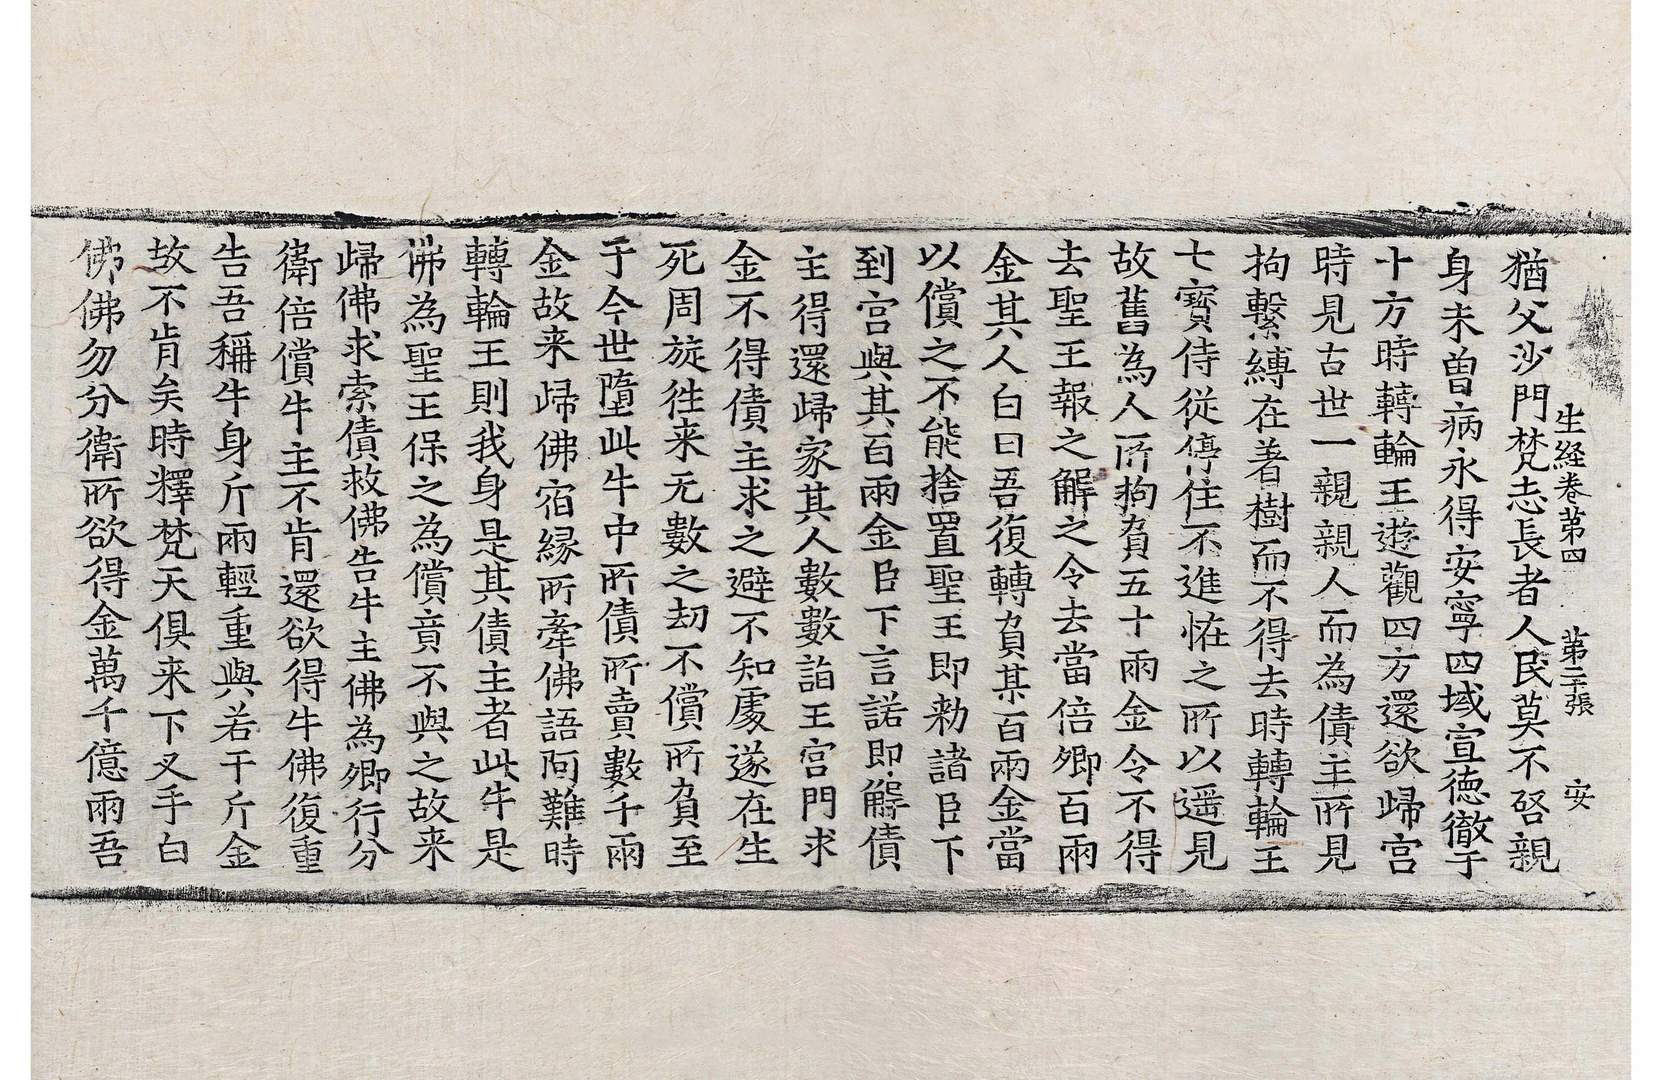 生経巻苐四　苐二十張　安
猶父沙門梵志長者人民莫不啓親
身未曽病永得安寧四域宣徳徹于
十方時轉輪王遊觀四方還欲歸宮
時見古世一親親人而為債主所見
拘繫縛在著樹而不得去時轉輪王
七寳侍從停住不進恠之所以遥見
故舊為人所拘負五十兩金令不得
去聖王報之解之令去當倍卿百兩
金其人白曰吾復轉負某百兩金當
以償之不能捨置聖王即勑諸臣下
到宮與其百兩金臣下言諾即解債
主得還歸家其人數數詣王宮門求
金不得債主求之避不知處遂在生
死周旋徃来无數之劫不償所負至
于今世墮此牛中所債所賣數千兩
金故来歸佛宿縁所牽佛語阿難時
轉輪王則我身是其債主者此牛是
佛為聖王保之為償竟不與之故来
歸佛求索債救佛告牛主佛為卿行分
衛倍償牛主不肯還欲得牛佛復重
告吾稱牛身斤兩輕重與若干斤金
故不肯矣時釋梵天俱来下叉手白
佛佛勿分衛所欲得金萬千億兩吾